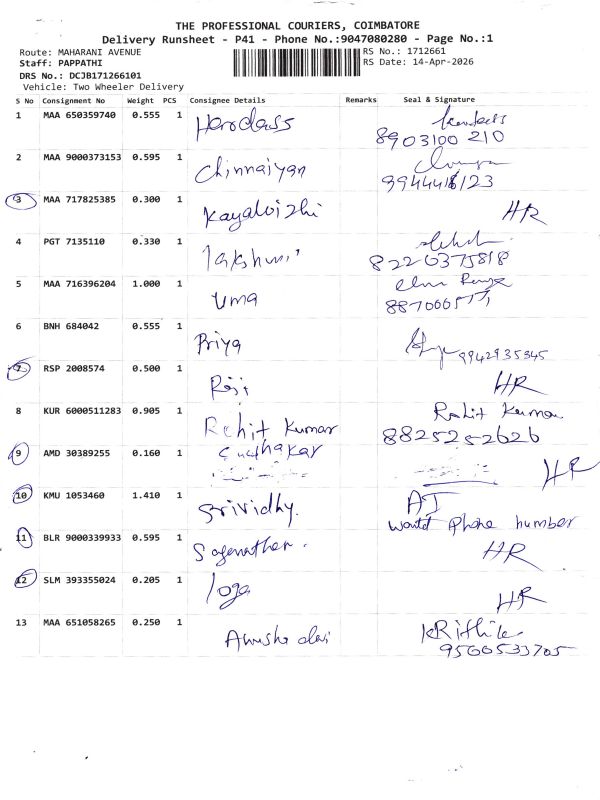 THE PROFESSIONAL COURIERS, COIMBATORE
Delivery Runsheet - P41 - Phone No.:9047080280 - Page No.:1
Route: MAHARANI AVENUE
RS No.: 1712661
Staff: PAPPATHI
RS Date: 14-Apr-2026
DRS No.: DCJB171266101
Vehicle: Two Wheeler Delivery
S No Consignment No Weight PCS Consignee Details Remarks Seal & Signature
1 MAA 650359740 0.555 1
8903100 210
2 MAA 9000373153 0.595 1 Chinnaiyan
3 MAA 717825385 0.300 1 Kayalvizhi HR
4 PGT 7135110 0.330 1 lakshmi
8220375818
5 MAA 716396204 1.000 1 Uma
6 BNH 684042 0.555 1 Priya
9942935345
7 RSP 2008574 0.500 1 Raji HR
8 KUR 6000511283 0.905 1 Rohit Kumar Rohit Kumar
8825252626
9 AMD 30389255 0.160 1 Sudhakar HR
10 KMU 1053460 1.410 1 Srividhy. AJ
would Phone number
11 BLR 9000339933 0.595 1 HR
12 SLM 393355024 0.205 1 loga HR
13 MAA 651058265 0.250 1 Anusha devi KRithik
9500533705